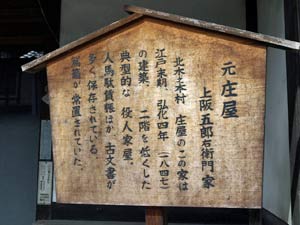 元庄屋
上阪五郎右衛門家
北木之本村 庄屋のこの家は
江戸末期、弘化四年(一八四七)
の建築、二階を低くした
典型的な役人家屋。
人馬駄賃帳ほか古文書が
多く保存されている。
駕籠が常置されていた。